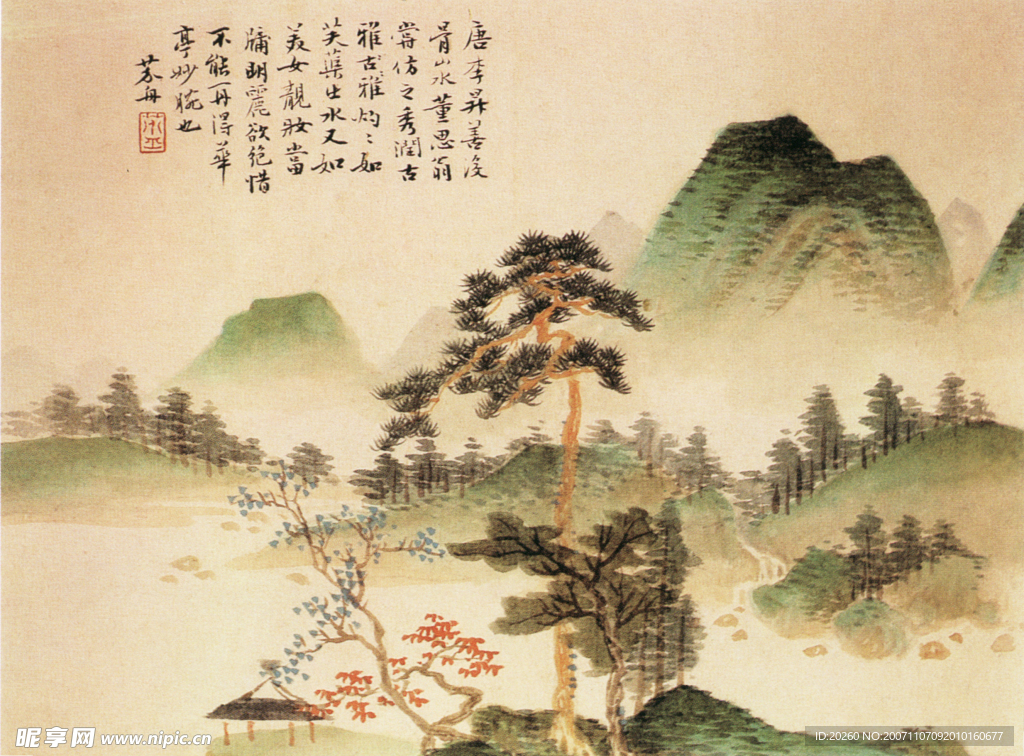 唐李昇善没
骨山水董思翁
嘗仿之秀潤古
雅古雅灼〻如
芙蕖出水又如
美女靚妝當
牖明麗欲絕惜
不能再得華
亭妙腕也
昵享网 www.nipic.cn
ID:20260 NO:20071107092010160677